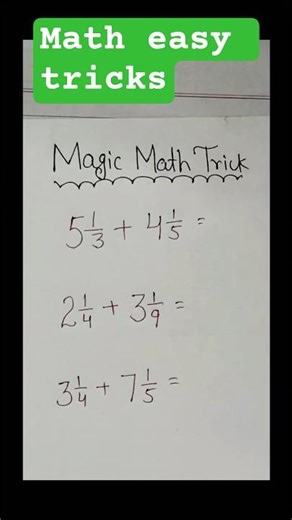 Math easy
tricks
Magic Math Trick
5 1/3 + 4 1/5 =
2 1/4 + 3 1/9 =
3 1/4 + 7 1/5 =